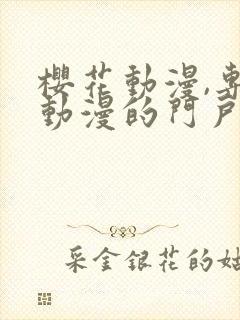 櫻花動漫,專
動漫的門戶
采金銀花的姑